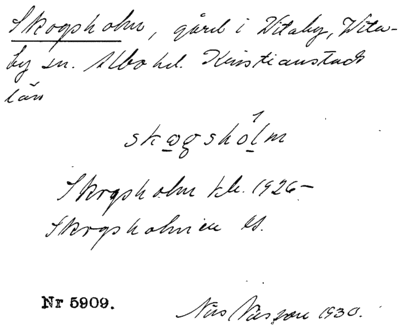 Skogsholm, gård i Vitaby, Vita-
by sn. Albo hd. Kristianstads
län
skogshólm
Skogsholm kb. 1926-
Skogsholmen
Nr 5909.
Nils 1930.